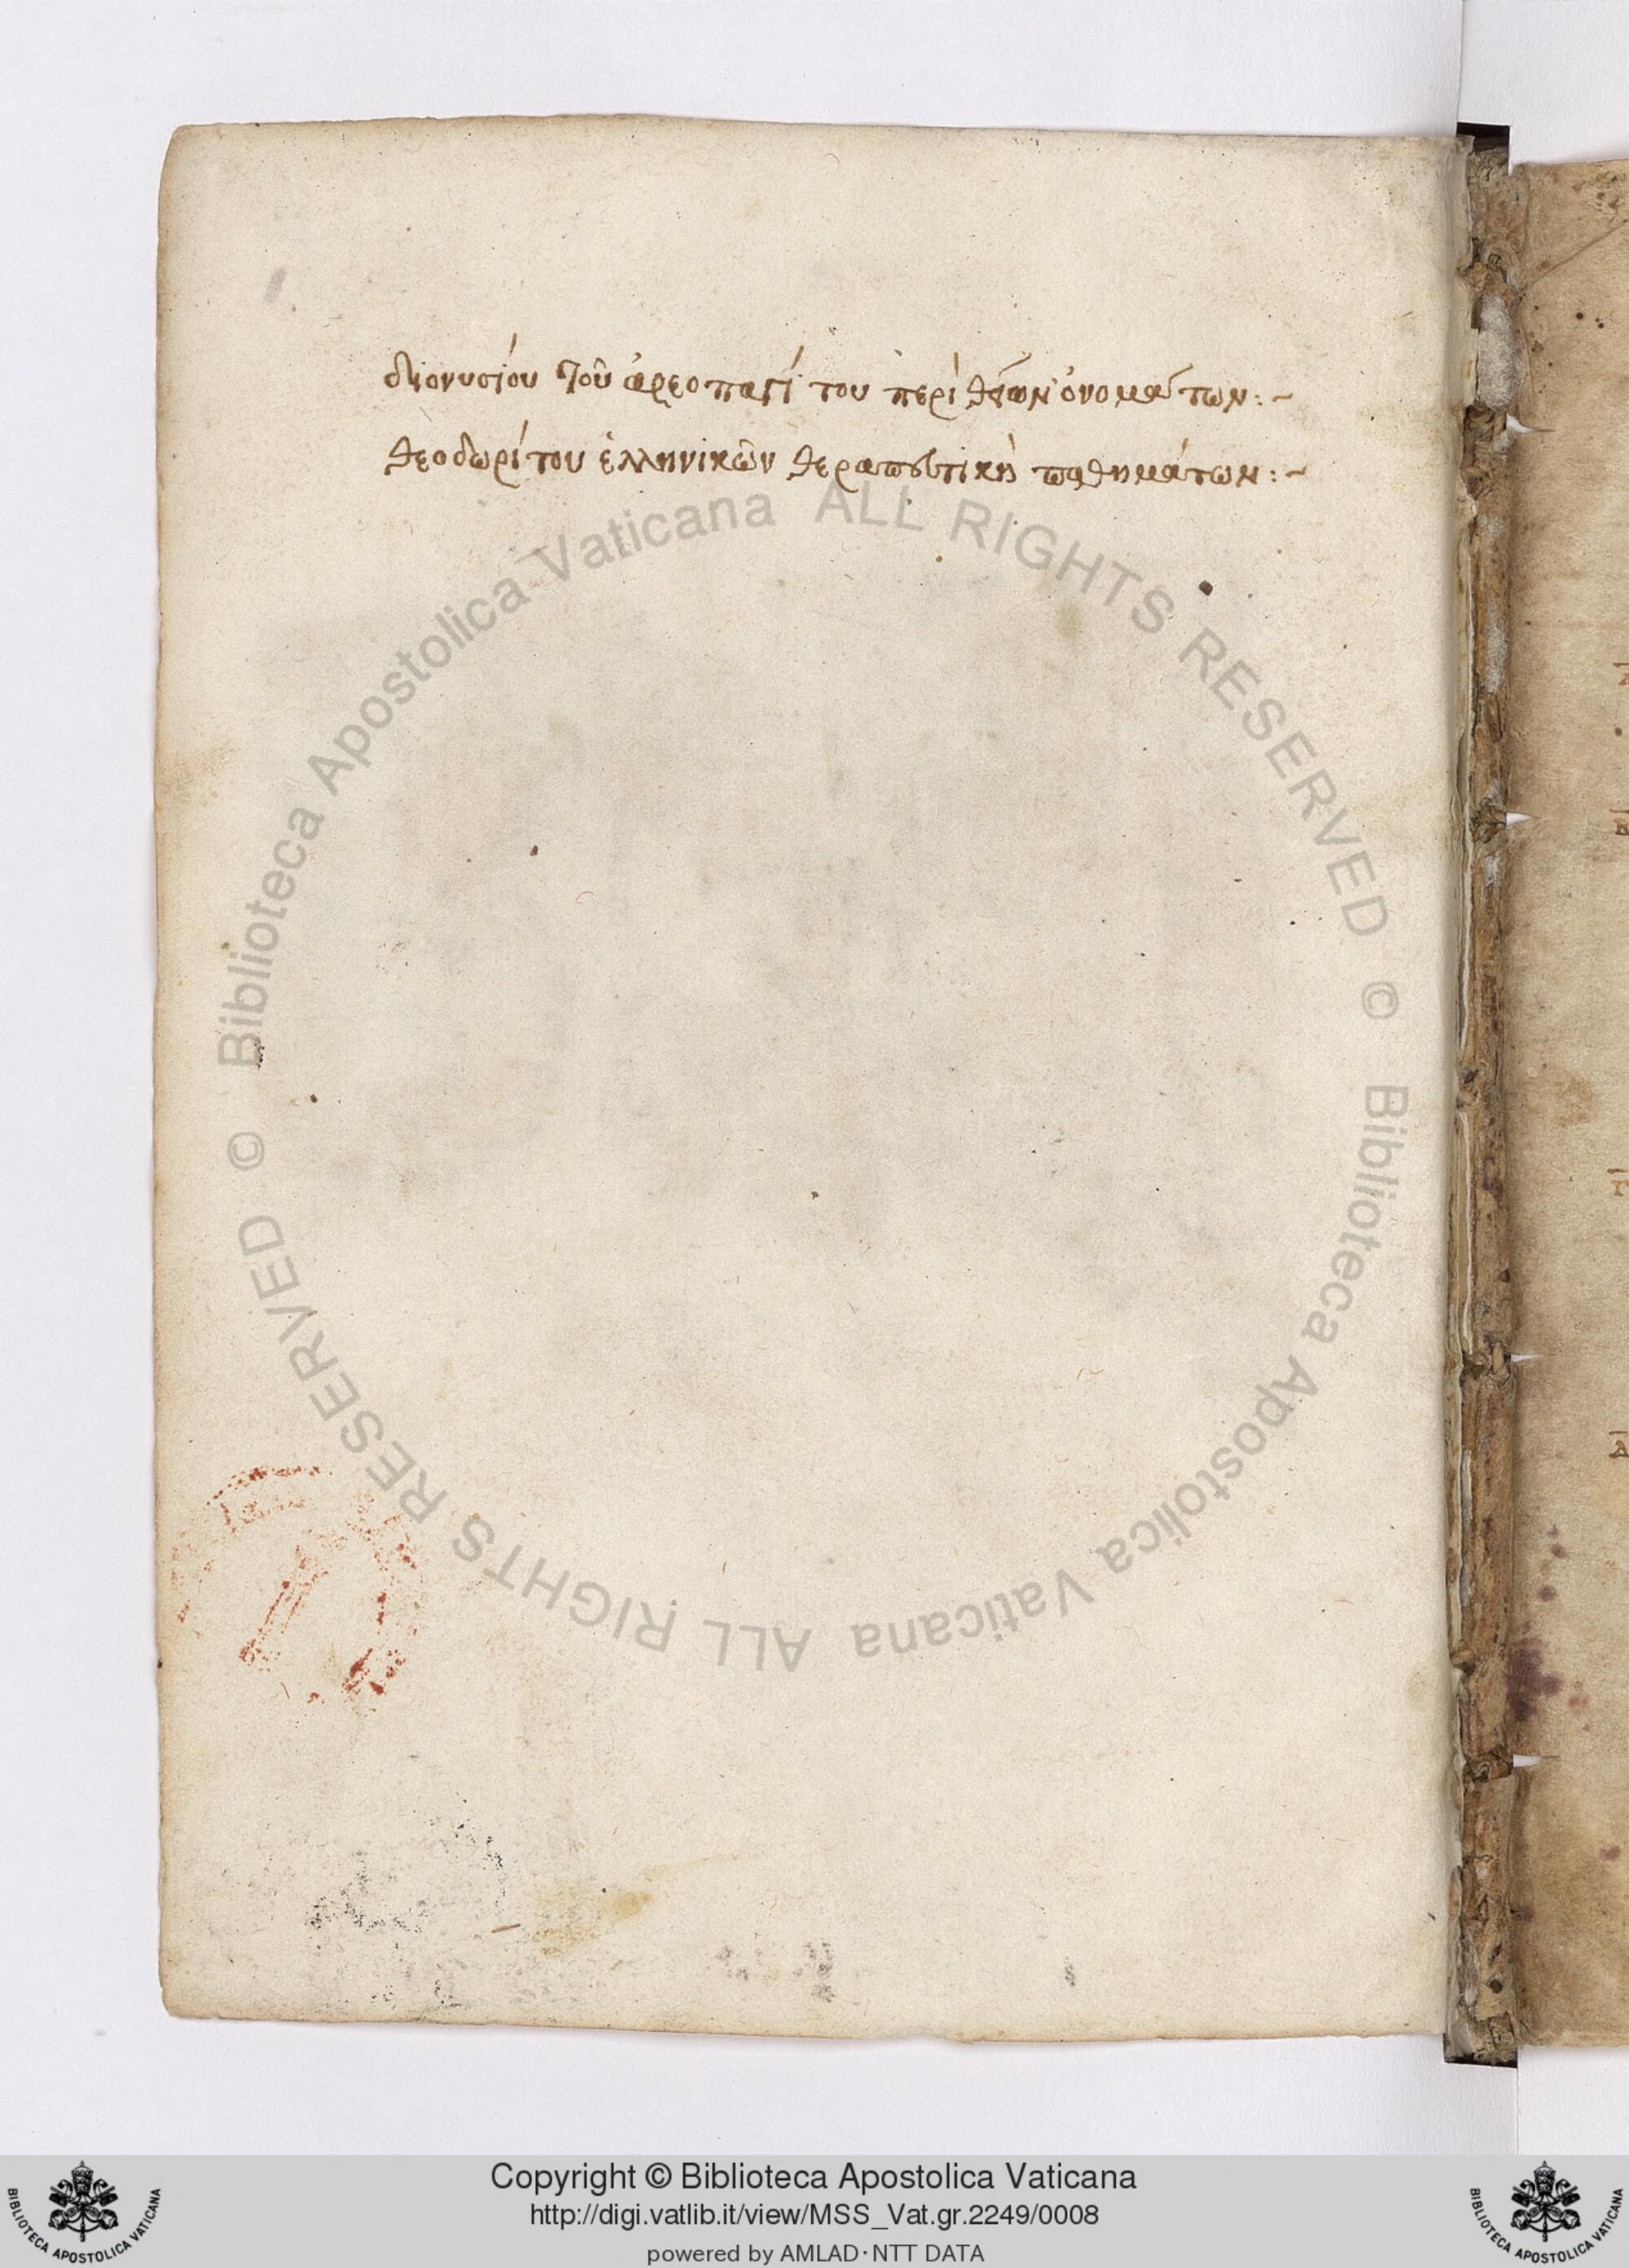 διονυσίου τοῦ ἀρεοπαγίτου περὶ θείων ὀνομάτων:~
θεοδωρίτου ἑλληνικῶν θεραπευτικὴ παθημάτων:~
© Biblioteca Apostolica Vaticana ALL RIGHTS RESERVED © Biblioteca Apostolica Vaticana ALL RIGHTS RESERVED
Copyright © Biblioteca Apostolica Vaticana
http://digi.vatlib.it/view/MSS_Vat.gr.2249/0008
powered by AMLAD·NTT DATA
BIBLIOTECA APOSTOLICA VATICANA
BIBLIOTECA APOSTOLICA VATICANA